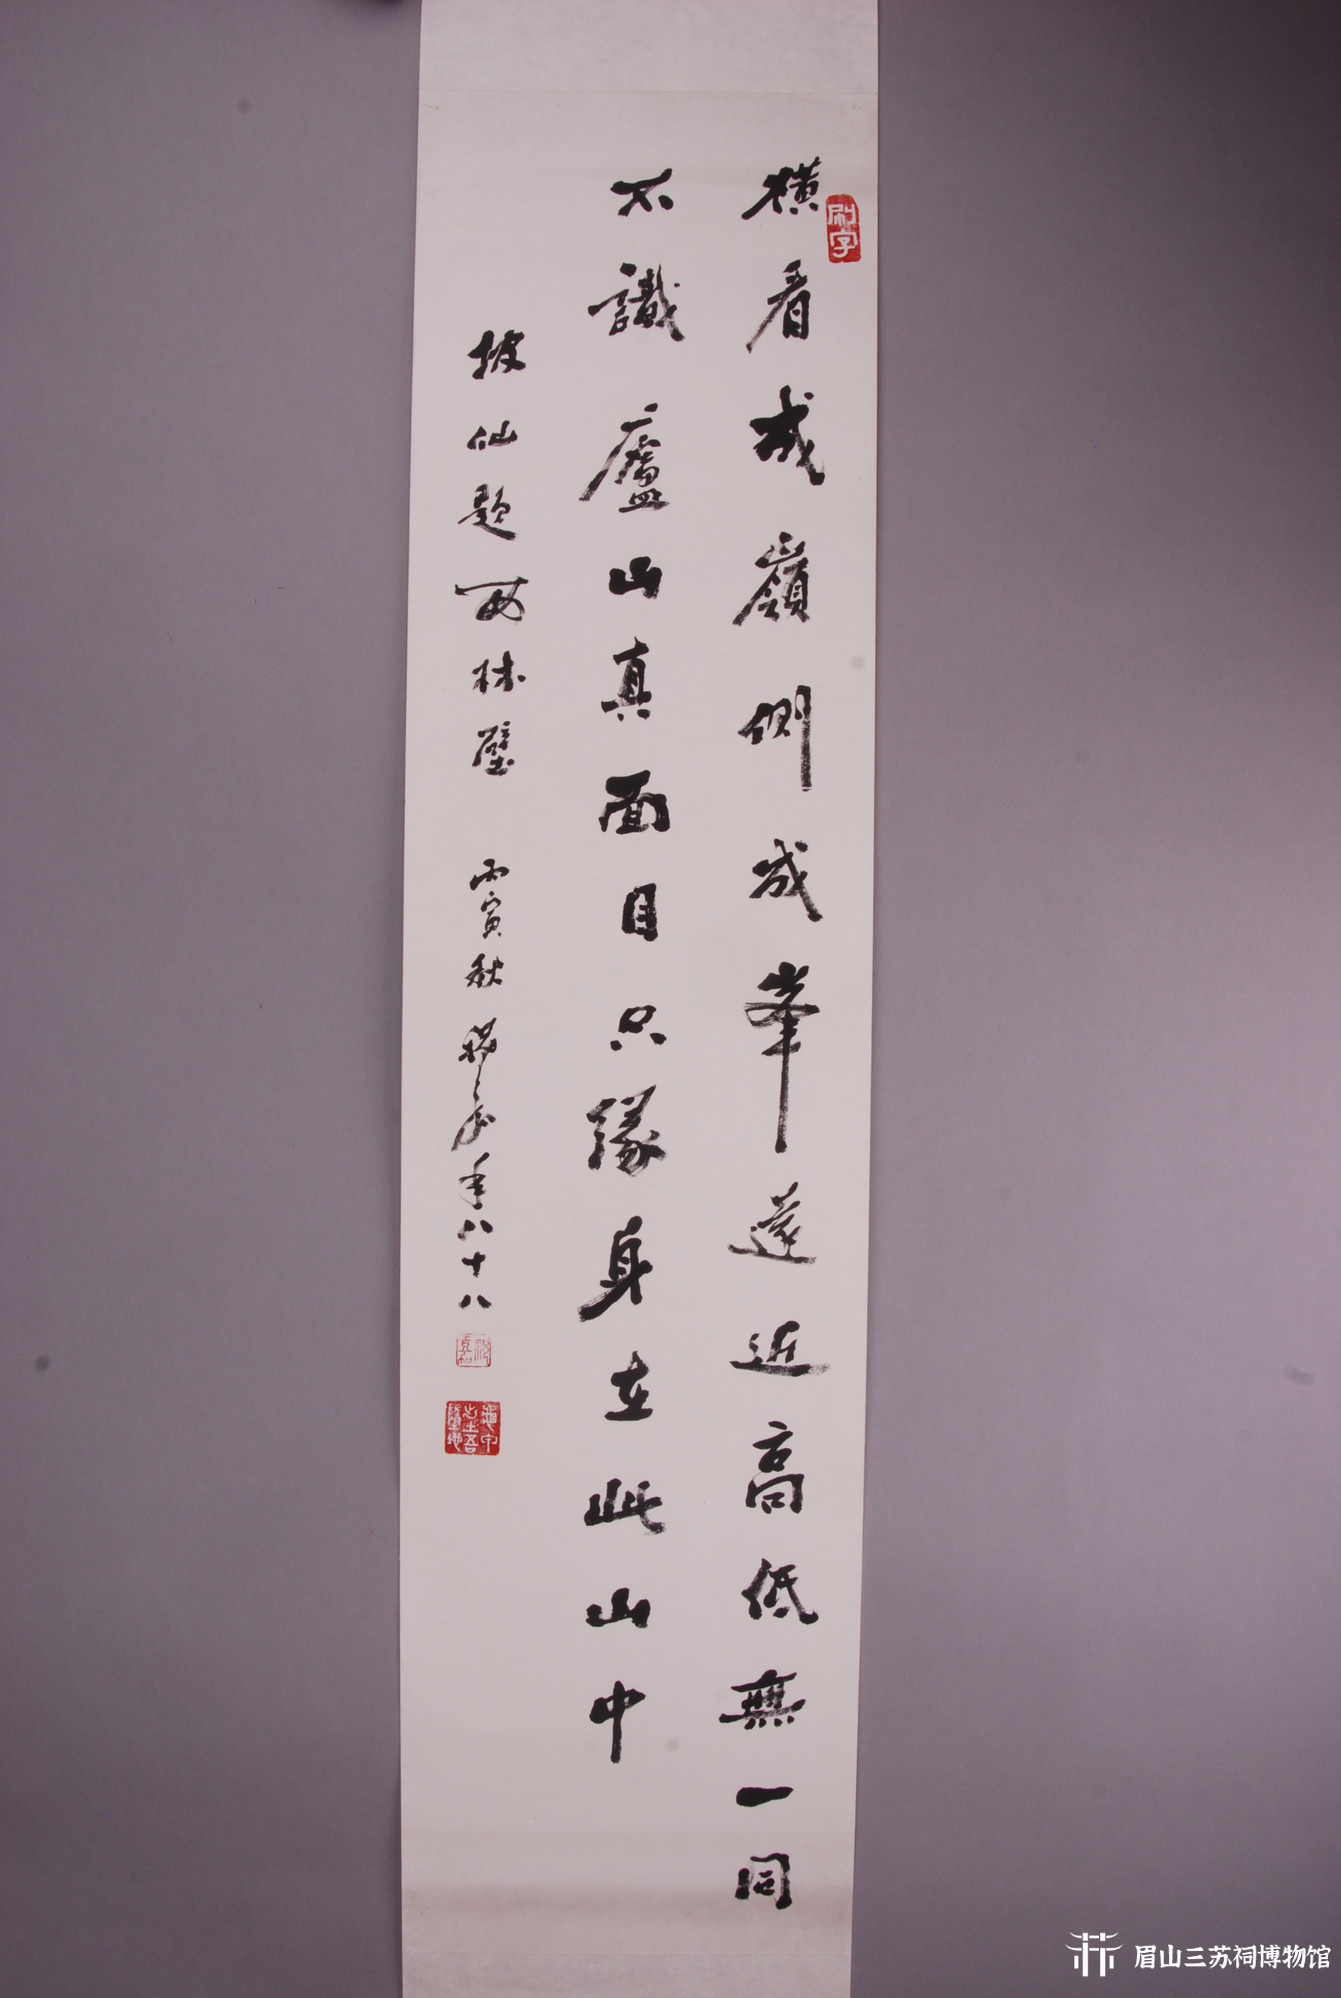 橫看成嶺側成峯遠近高低無一同
不識廬山真面目只緣身在此山中
坡仙題西林壁 丙寅秋 年八十八
刷字
眉山三苏祠博物馆